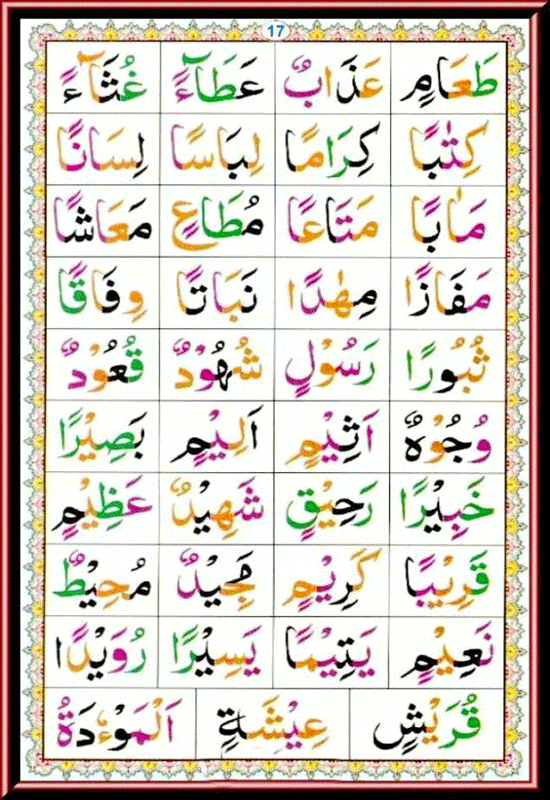 17
طَعَامٍ عَذَابٌ عَطَآءً غُثَآءً
كِتٰبًا كِرَامًا لِبَاسًا لِسَانًا
مَاٰبًا مَتَاعًا مُطَاعٍ مَعَاشًا
مَفَازًا مِهٰدًا نَبَاتًا وِفَاقًا
ثُبُوْرًا رَسُوْلٍ شُهُوْدٌ قُعُوْدٌ
وُجُوْهٌ اَثِيْمٍ اَلِيْمٍ بَصِيْرًا
خَبِيْرًا رَحِيْقٍ شَهِيْدٌ عَظِيْمٍ
قَرِيْبًا كَرِيْمٍ مَجِيْدٌ مُحِيْطٌ
نَعِيْمٍ يَتِيْمًا يَسِيْرًا رُوَيْدًا
قُرَيْشٍ عِيْشَةٍ اَلْمَوْءٗدَةُ